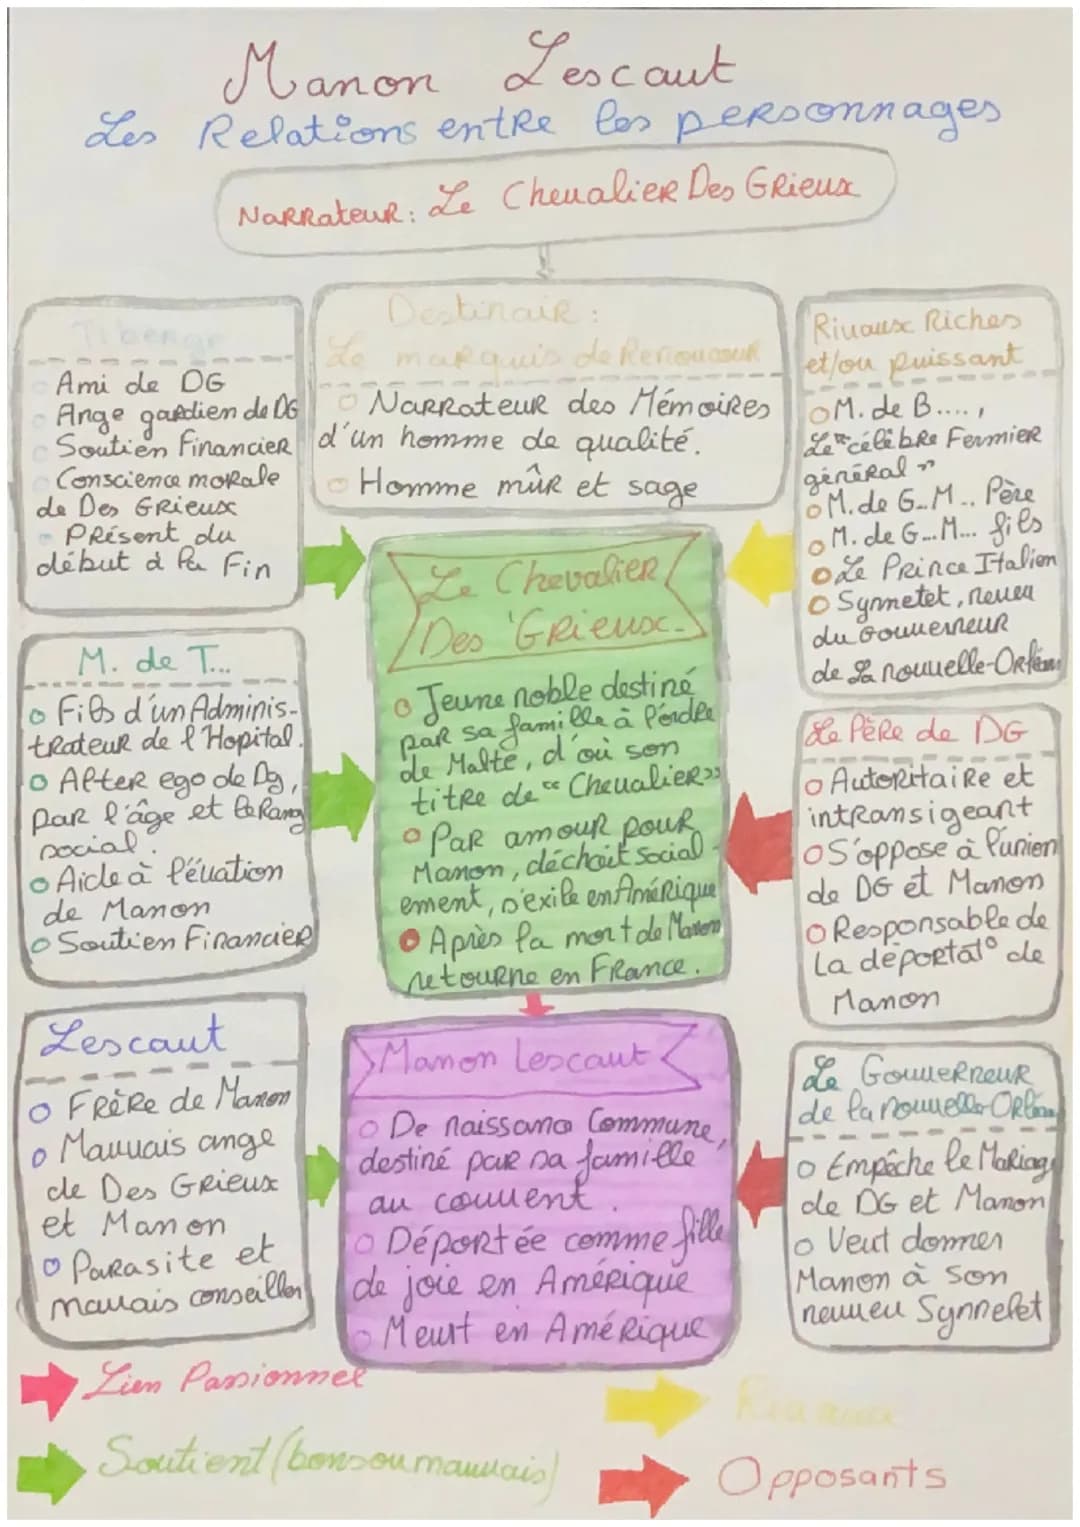 Manon Lescaut
Les Relations entre les personnages
Narrateur: Le Chevalier Des Grieux
Tiberge
Ami de DG
Ange gardien de DG
Soutien Financier
Conscience morale
de Des Grieux
Présent du
début à la Fin
Destinair:
Le marquis de Renoncour
Narrateur des Mémoires
d'un homme de qualité.
Homme mûr et sage
Rivaux Riches
et/ou puissant
M. de B....,
Le "célèbre Fermier
général"
M. de G..M.. Père
M. de G...M... fils
Le Prince Italien
Synnetet, neveu
du Gouverneur
de La nouvelle-Orléans
M. de T...
Fils d'un Adminis-
trateur de l'Hopital.
Alter ego de Dg,
par l'âge et le Rang
social.
Aide à l'évation
de Manon
Soutien Financier
Le Chevalier
Des Grieux
Jeune noble destiné
par sa famille à l'ordre
de Malte, d'où son
titre de "Chevalier"
Par amour pour
Manon, déchoit social-
ement, s'exile en Amérique
Après la mort de Manon
retourne en France.
Le Père de DG
Autoritaire et
intransigeant
S'oppose à l'union
de DG et Manon
Responsable de
la déportat° de
Manon
Lescaut
Frère de Manon
Mauvais ange
de Des Grieux
et Manon
Parasite et
mauvais conseiller
Manon Lescaut
De naissance Commune,
destiné par sa famille
au couvent.
Déportée comme fille
de joie en Amérique
Meurt en Amérique
Le Gouverneur
de la nouvelle-Orléans
Empêche le Mariage
de DG et Manon
Veut donner
Manon à son
neuveu Synnelet
Lien Passionnel
Rivaux
Soutient (bons ou mauvais)
Opposants